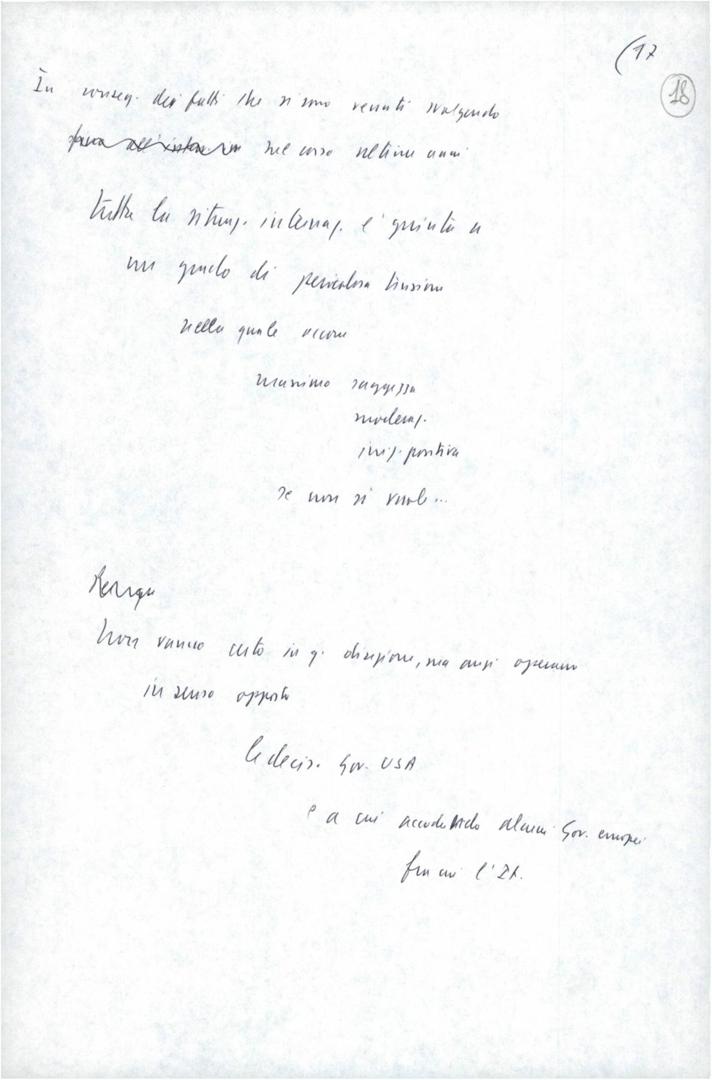 (17
18
In conseg. dei fatti che si sono venuti svolgendo
nel corso ultimi anni
tutta la situaz. internaz. è giunta a
un grado di pericolosa tensione
nella quale occorre
massima saggezza
moderaz.
iniz. positiva
se non si vuole...
non vanno certo in q. direzione, ma anzi operano
in senso opposto
le decis. Gov. USA
e a cui accodando alcuni Gov. europei
fra cui l'It.